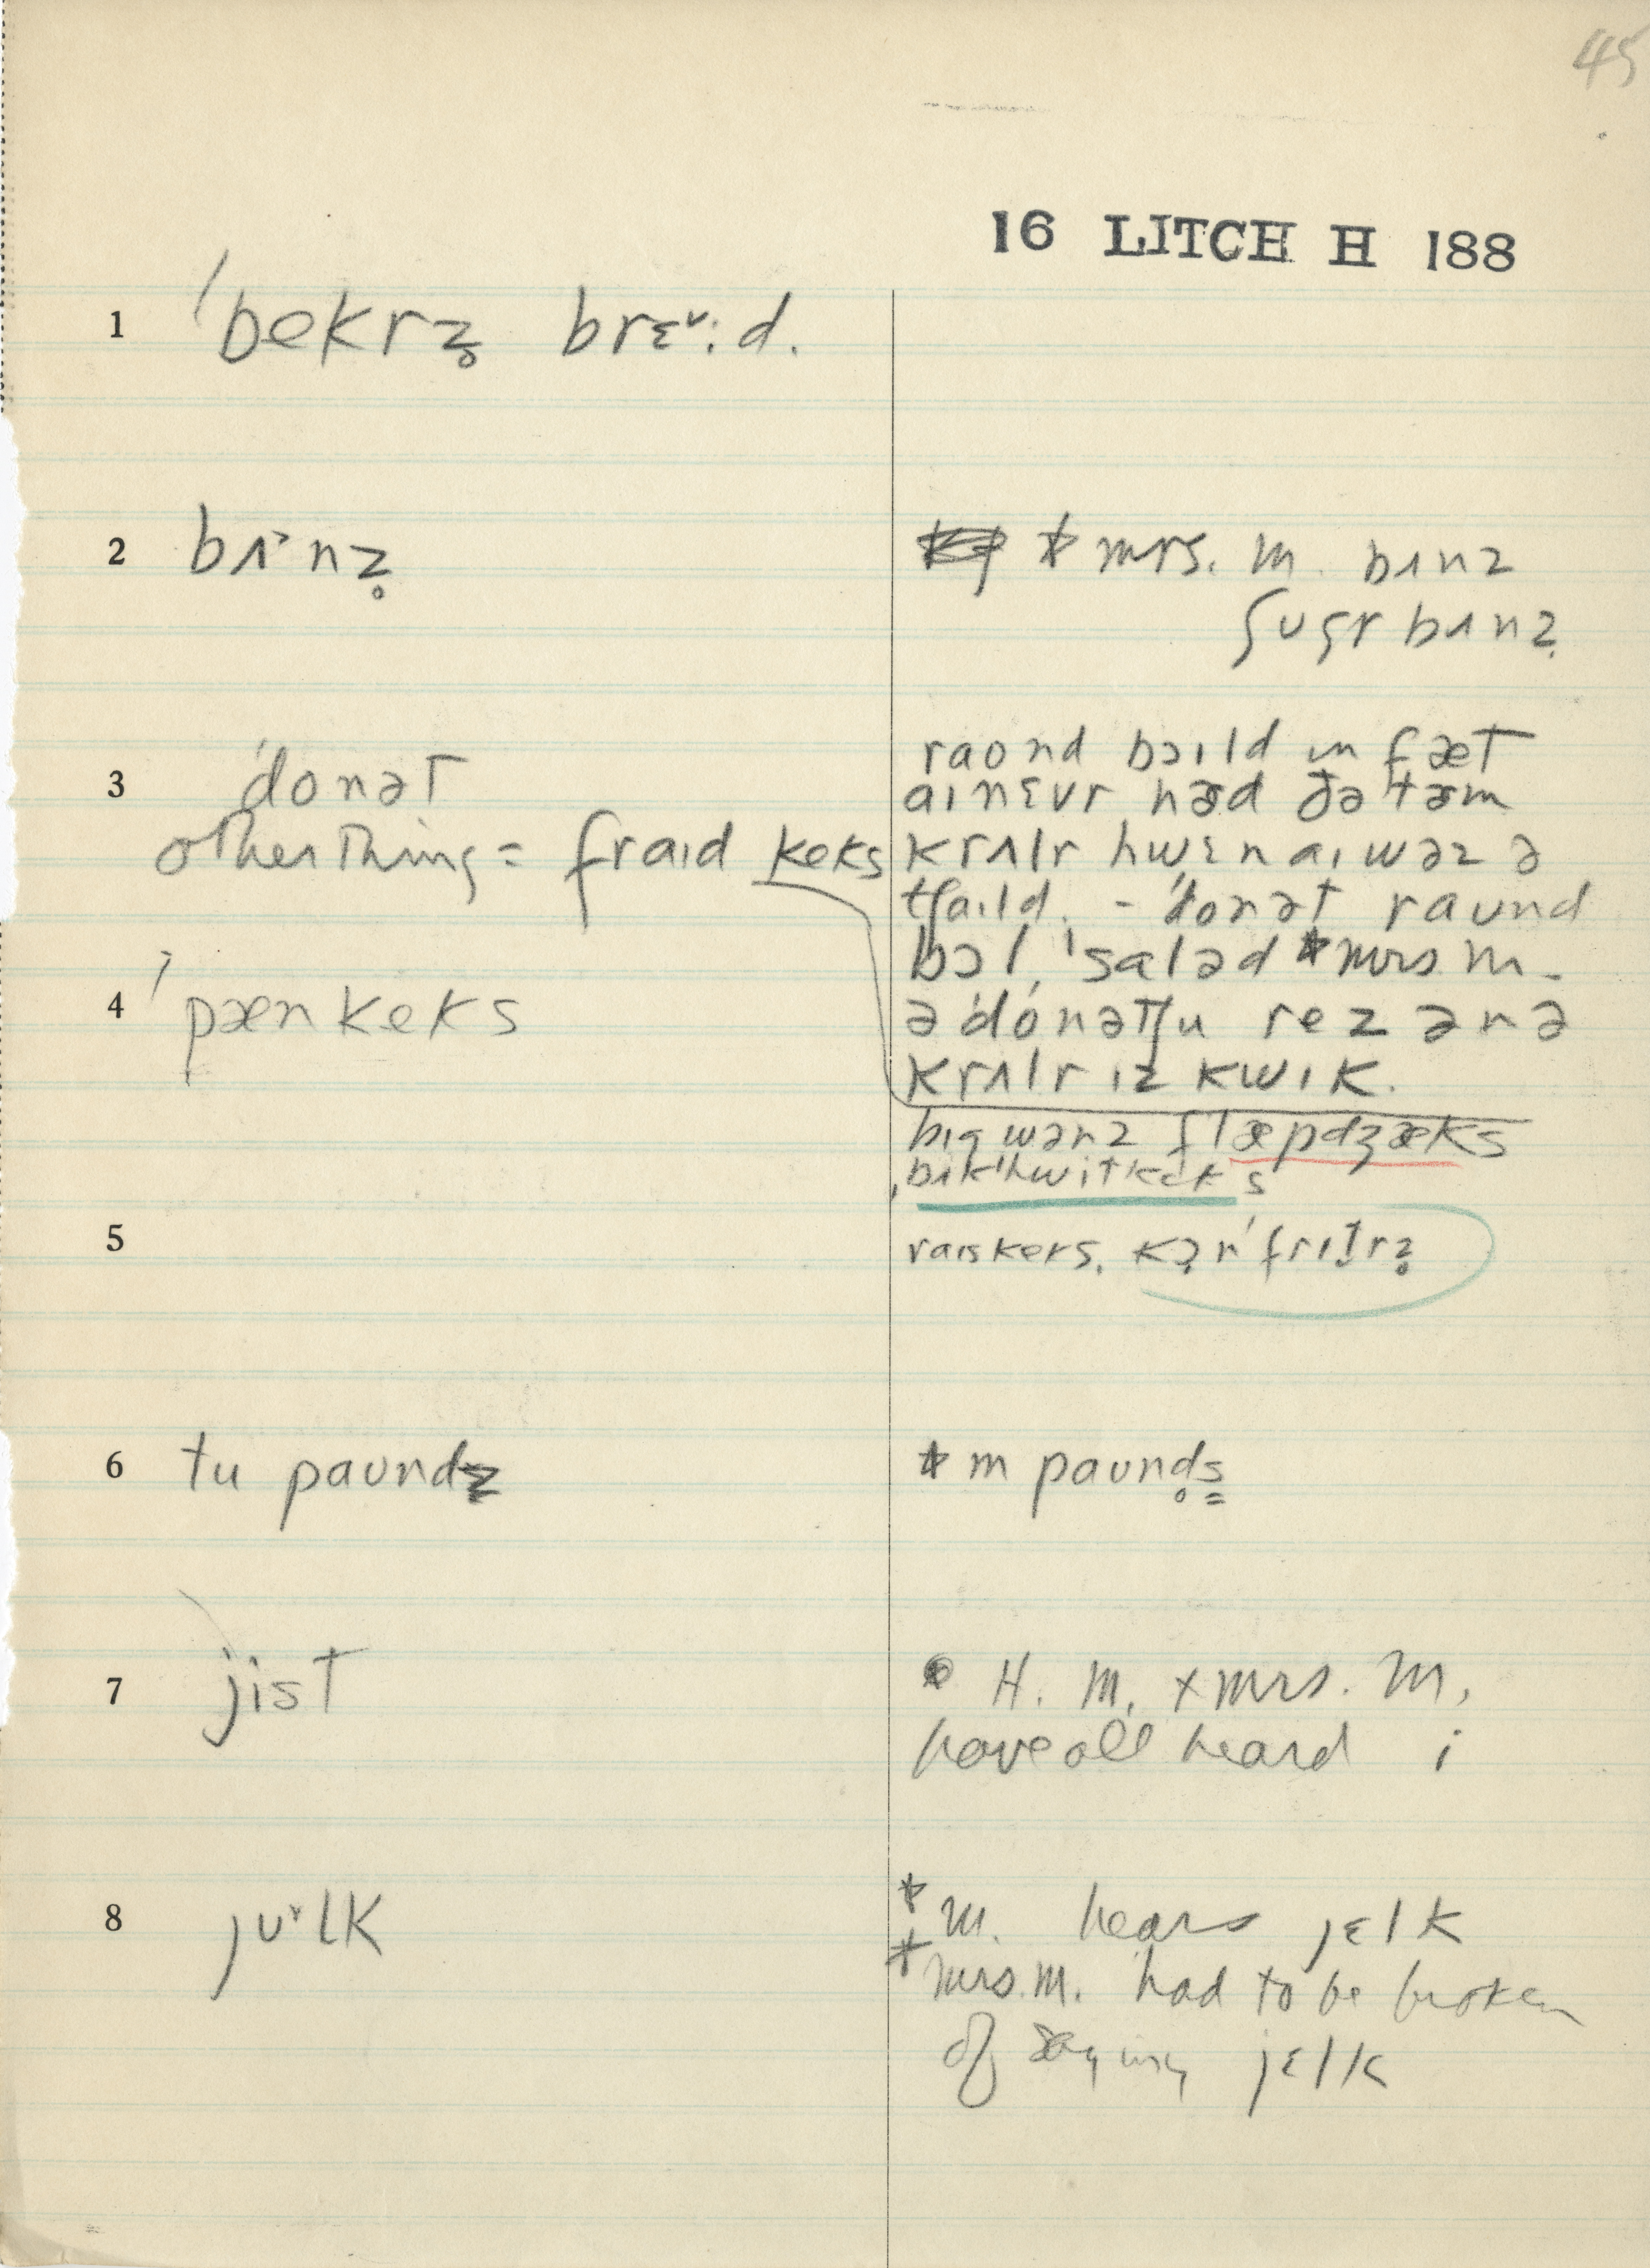 45
16 LITCH H 188
1 ˈbekrz̥ brɛ˅:d.
2 bʌ˃nz̥
* mrs. M. bʌnz
ʃugr bʌnz̥
3 ˈdonət
other thing = fraɪd keks
raond bɔɪld ɪn fæt
aɪ nɛvr hæd ðə tɜm
krʌlr hwɛn aɪ wəz ə
tʃaɪld. - ˈdonət raund
bɔl, ˈsaləd * mrs M -
ə ˈdonəTʃu rez ən ə
krʌlr ɪz kwɪk.
4 ˈpænkeks
bɪg wənz flæpdʒæks
ˌbʌkˈhwitkeks
5
raɪskeks. kɔ̣rnˈfrɪt̬rz̥
6 tu paundz
* M paund̥s̳
7 jist
H. M. + Mrs. M.
have all heard i
8 jʊ˅lk
* M. hears jɛlk
* Mrs. M. had to be broken
of saying jɛlk